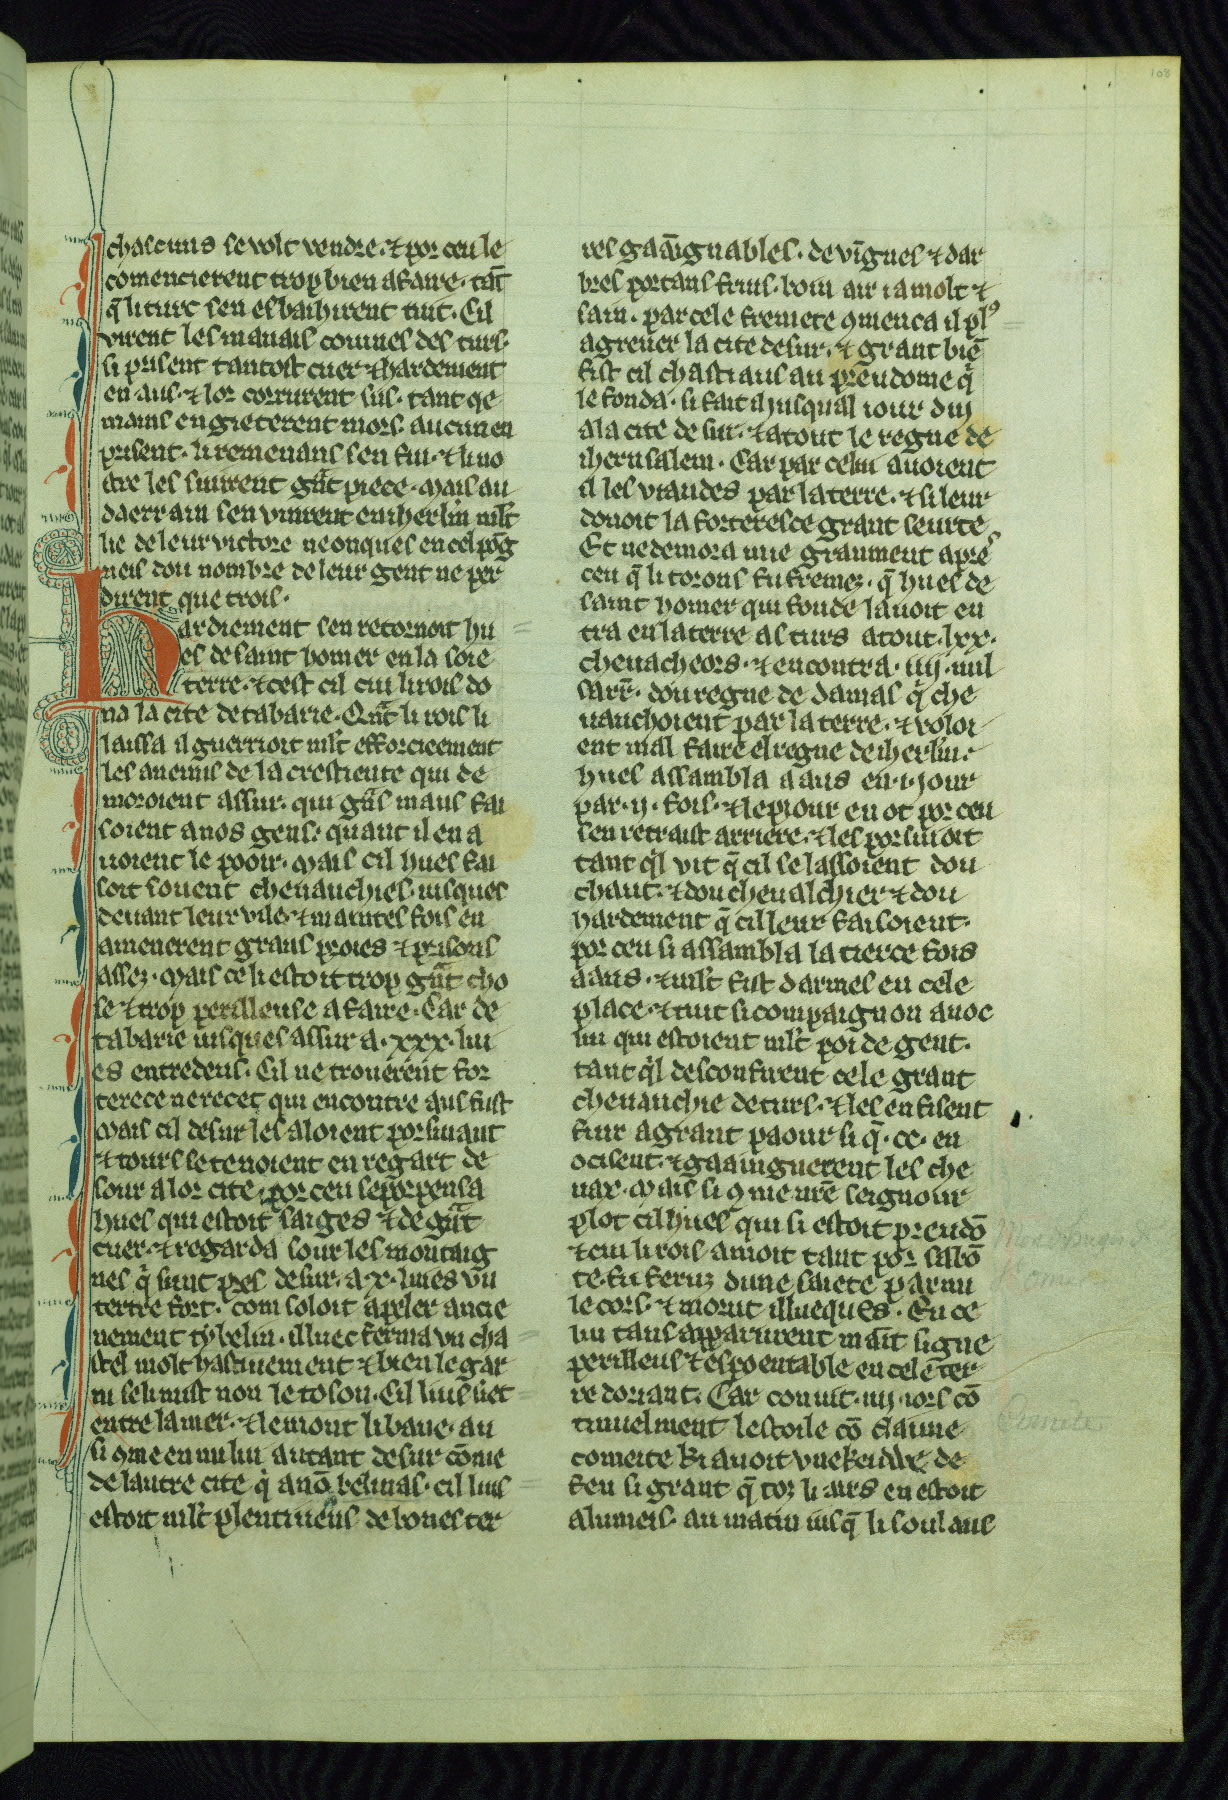 108
chascuns se volt vendre. ⁊ por ceu le
comencierent trop bien a faire. tāt
q̄ li turc sen esbaihirent tuit. Cil
virent les mauais couines des turs.
si prisent tantost cuer ⁊ hardement
en aus. ⁊ lor corrurent sus. tant qe
mains en gieterent mors. aucun en
prisent. li remenans sen fui. ⁊ li no
stre les suirent gāt piece. Mais au
daerrain sen vinrent en iherl̄m ml̄t
lie de leur victore ne onques en cel pōg
neis dou nombre de leur gent ne per
dirent que trois.
Hardiement sen retornoit hu
es de saint homer en la soie
terre. ⁊ cest cil cui li rois do
na la cite de tabarie. Qāt li rois li
laissa il guerrioit ml̄t efforcieement
les anemis de la crestiente qui de
moroient assur. qui gās maus fai
soient a nos gens. quant il en a
uoient le pooir. Mais cil hues fai
soit souent cheuauchies. iusques
deuant leur vile. ⁊ maintes fois en
amenerent grans proies ⁊ prisons
assez. Mais ce li estoit trop gāt cho
se ⁊ trop perilleuse a faire. Car de
tabarie iusques assur a .xxx. liu
es entredeus. Cil ne trouerent for
terece ne recet qui encontre aus fust
Mais cil de sur les aloient porsiuant
⁊ tours se tenoient en regart de
sour a lor cite. por ceu se porpensa
hues qui estoit saiges ⁊ de gāt
cuer. ⁊ regarda sour les montaig
nes q̄ sunt pres de sur. a .x. liues vn
tertre fort. com soloit apeler ancie
nement tybelin. illuec ferma vn cha
stel molt hastiuement ⁊ bien le gar
ni se li mist non le toson. Cil lius siet
entre la mer. ⁊ le mont libane. au
si 9me en mi liu autant de sur cōme
de lautre cite q̄ a nō belinas. cil lius
estoit ml̄t plentiueus de bones ter
res gaāignables. de vignes ⁊ dar
bres portans fruis. boin air i a molt ⁊
sain. par cele fremete 9menca il pl9
a greuer la cite de sur. ⁊ grant biē
fist cil chastiaus au preudome q̄
le fonda. si fait il iusqual iour dui
a la cite de sur. ⁊ a tout le regne de
iherusalem. Car par celui auoient
il les viandes par la terre. ⁊ si leur
donoit la forteresce grant seurte
Et ne demora mie graument apres
ceu q̄ li torons fu fremez. q̄ hues de
saint homer qui fonde lauoit en
tra en la terre as turs atout .lxx.
cheuacheors. ⁊ encontra .iiij. mil
sarr̄. dou regne de damas q̄ che
uauchoient par la terre. ⁊ voloi
ent mal faire el regne de iherl̄m.
hues assambla a aus en .i. jour
par .ij. fois. ⁊ le piour en ot por ceu
sen retraist arriere. ⁊ les porsiuoit
tant q̄l vit q̄ cil se lassoient dou
chaut. ⁊ dou cheualchier ⁊ dou
hardement q̄ cil leur faisoient.
por ceu si assambla la tierce fois
a aus. ⁊ ml̄t fist darmes en cele
place. ⁊ tuit si compaignon auoc
lui qui estoient ml̄t poi de gent.
tant q̄l desconfirent cele grant
cheuauchie de turs. ⁊ les en fisent
fuir a grant paour si q̄ .cc. en
ocisent. ⁊ gaaingnerent les che
uax. Mais si 9me nr̄e seignour
plot cil hues qui si estoit preudō
⁊ cui li rois amoit tant por sa bō
te. fu feruz dune saiete parmi
le cors. ⁊ morut illueques. En ce
lui tans apparurent maīt signe
perilleus ⁊ espoentable en cele ter
re doriant. Car con vit .iiij. iors cō
tinuelment lestoile cō claime
comeite ki auoit vne keuwe de
feu si grant q̄ toz li airs en estoit
alumeis. au matin iusq̄ li soulaus
Comete